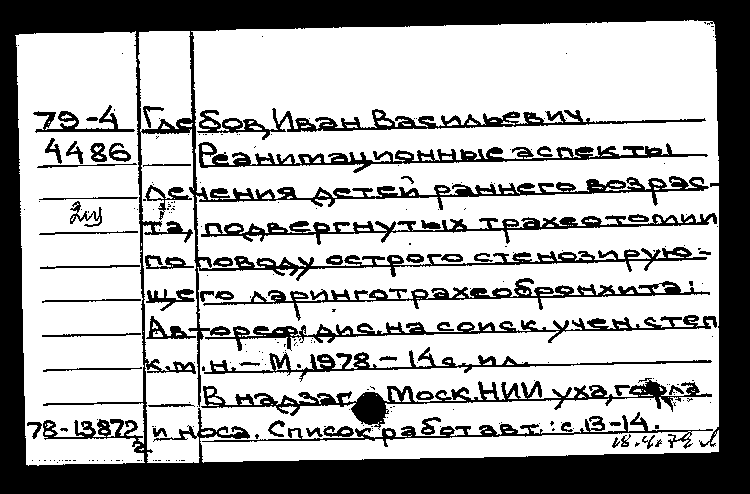 79-4 Глебов, Иван Васильевич.
4486 Реанимационные аспекты
лечения детей раннего возрас-
та, подвергнутых трахеотомии
по поводу острого стенозирую-
щего ларинготрахеобронхита:
Автореф. дис. на соиск. учен. степ
к.м.н. - М., 1978. - 14 с., ил.
В надзаг. Моск. НИИ уха, горла
78-13872 и носа. Список работ авт.: с. 13-14.
18.4.79